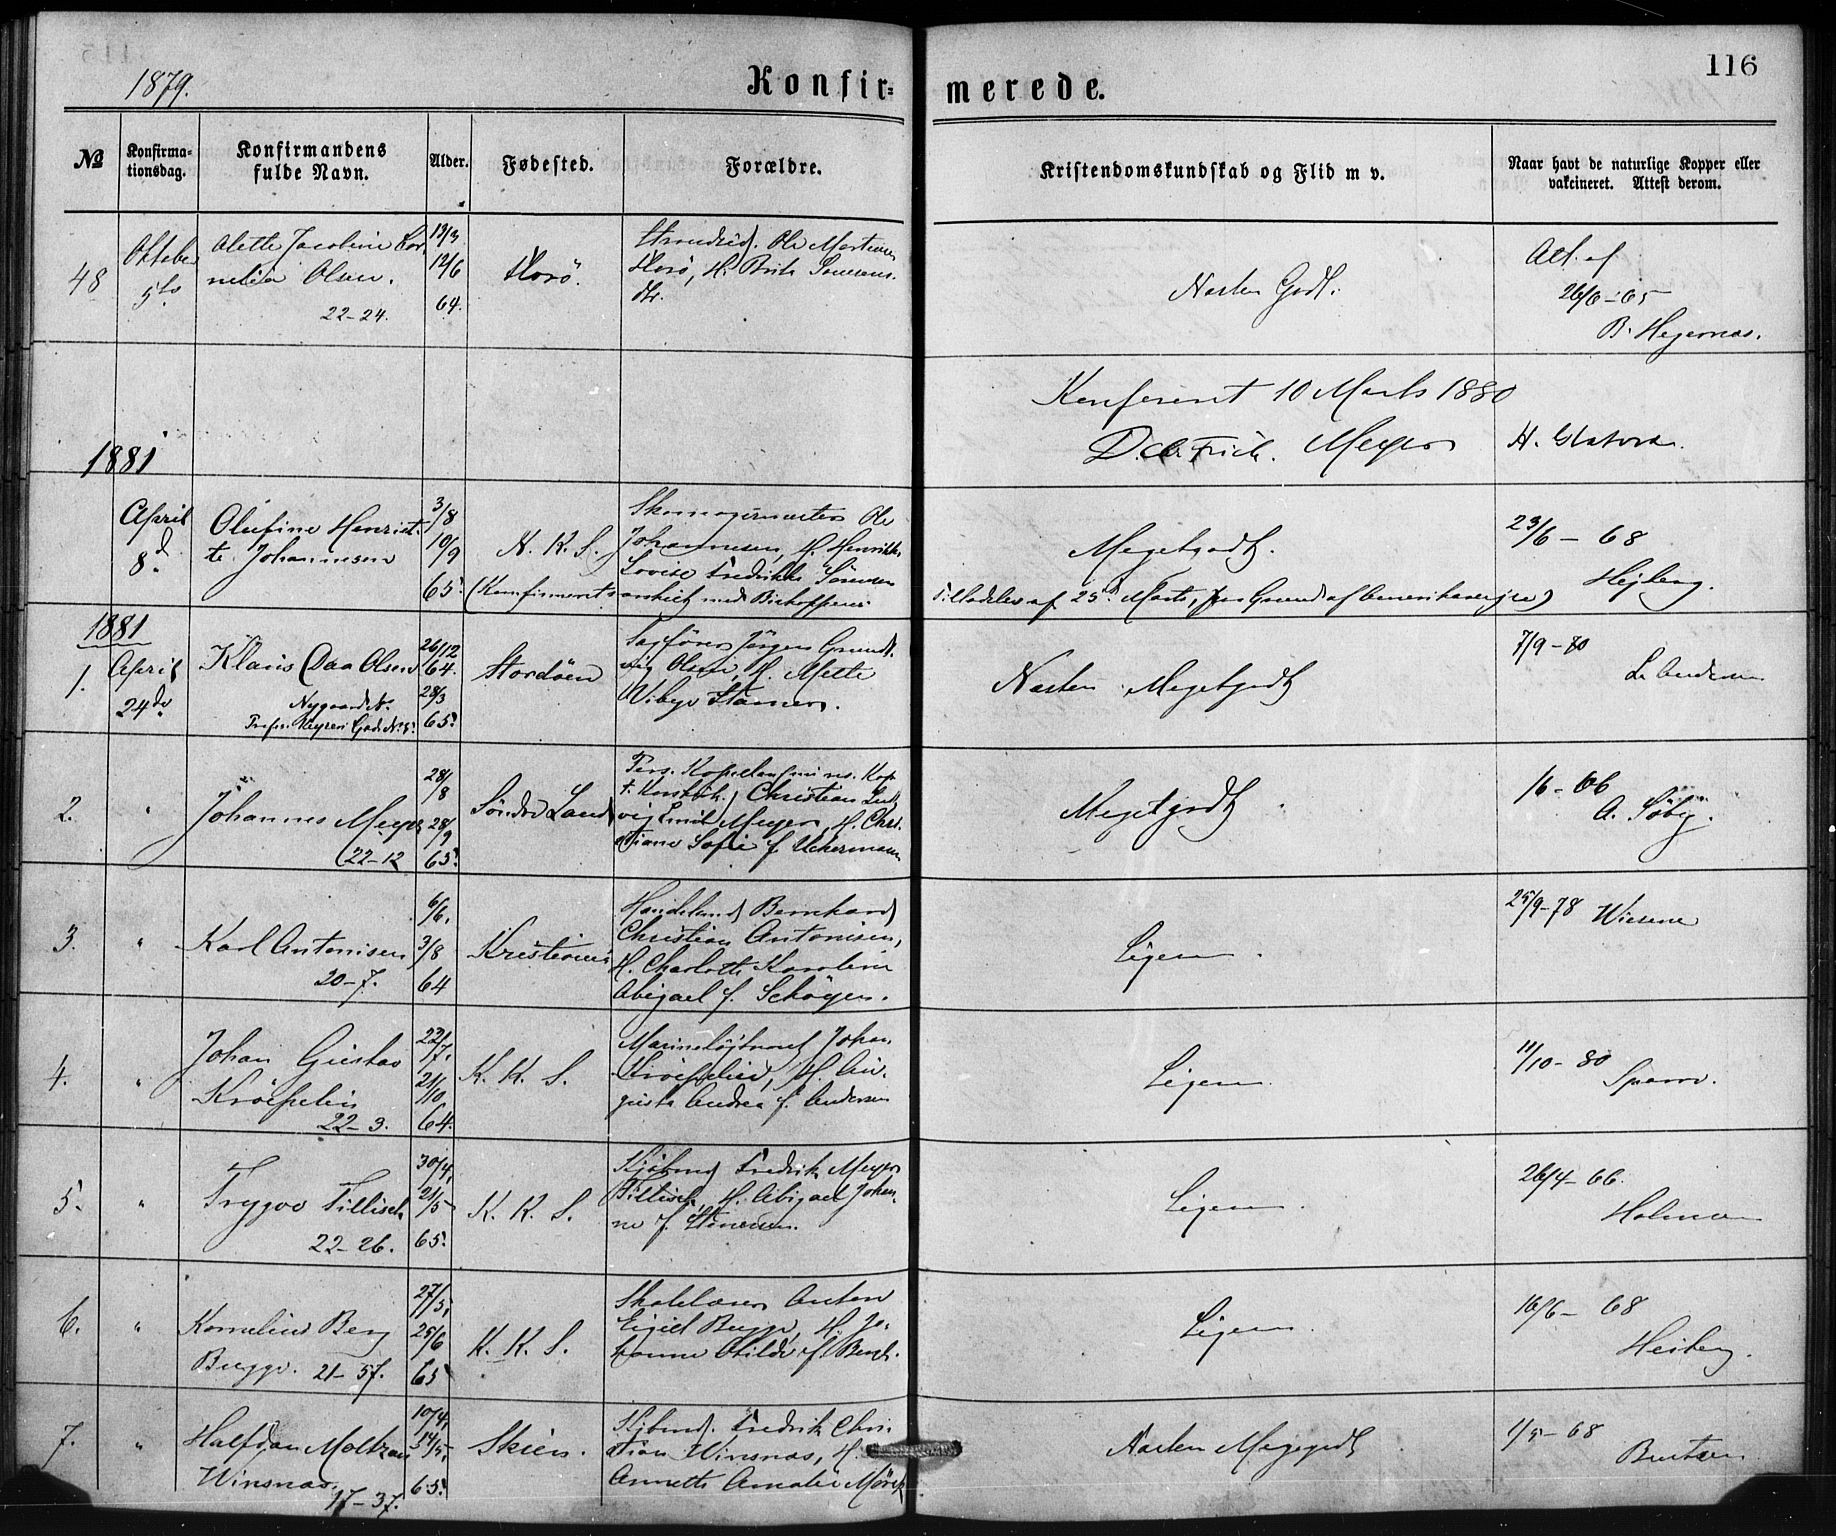 116
1879.
Konfir-
merede.
№
Konfirma-
tionsdag.
Konfirmandens
fulde Navn.
Alder.
Fødested.
Forældre.
Kristendomskundskab og Flid m v.
Naar havt de naturlige Kopper eller
vakcineret. Attest derom.
48
Oktober
5te
Olette Jacobine Cor-
nelia Olsen.
22-24.
12/6
64.
Ole
H. Brite
dtr.
Næsten Godt.
Att. af
26/6-65
B. Hegernæs.
Konfereret 10 Marts 1880
Meyer
1881
April
8d.
Olufine Henriet-
te Johannesen
3/8
10/9
65.
K. K. S.
Skomagermester Ole
Johannesen, H. Henrikke
Lovise Fredrikke Sørensen
Megetgodt.
(Konfirmeret særskilt med Biskoppens
Tilladelse af 25d Marts, paa Grund af Amerikareise)
23/6 - 68
Hejberg.
1881
1.
April
24de
Klaus Daa Olsen
Nygaards N.
26/12
64.
28/3
65.
Stordøen
Sagfører Jørgen Grundt-
vig Olsen, H. Mette
Wibye Stamer.
Næsten Megetgodt
7/9-80
2.
"
Johannes Meyer
22-12
28/
8
28/
9
65.
Søndre Land
Pers. Kapellan
Christian Lud-
vig Smit Meyer, H. Chri-
stiane Sofie f. Uckermann
Megetgodt
1/6-66
A. Søby.
3.
"
Karl Antonisen
20-7.
6/6.
3/8
64
Kristiania
Handelsmd Bernhard
Christian Antonisen,
H. Charlotte Karoline
Abigael f. Schøyen.
Ligesaa.
25/9-78 Wiesener
4.
"
Johan Gustav
Kröepelin
22-3.
22/7.
21/10
64.
K. K. S.
Marineløjtnant Johan
Kröepelin, H. Au-
gusta Andrea f. Andersen
Ligesaa.
11/10-80
Sparre.
5.
"
Trygve Tillisch
22-26.
30/4,
21/5
65.
K. K. S.
Kjøbmd Fredrik Meyer
Tillisch, H. Abigael Johan-
ne f. Stenersen.
Ligesaa.
26/4-66.
Holmen
6.
"
Kornelius Berg
Bugge. 21-57.
27/5,
25/6
65
K. K. S.
Skolelærer Anton
Eigiel Bugge, H. Jo-
hanne Otilde f. Bendi.
Ligesaa.
16/6-68
Heiberg.
7.
"
Halfdan Moltzau
Winsnæs.
17-37.
10/4,
14/5,
65.
Skien.
Kjbmd. Fredrik Chri-
stian Winsnæs, H.
Annette Amalie Mørch
Næsten Megetgodt
1/5-68
Bentzen